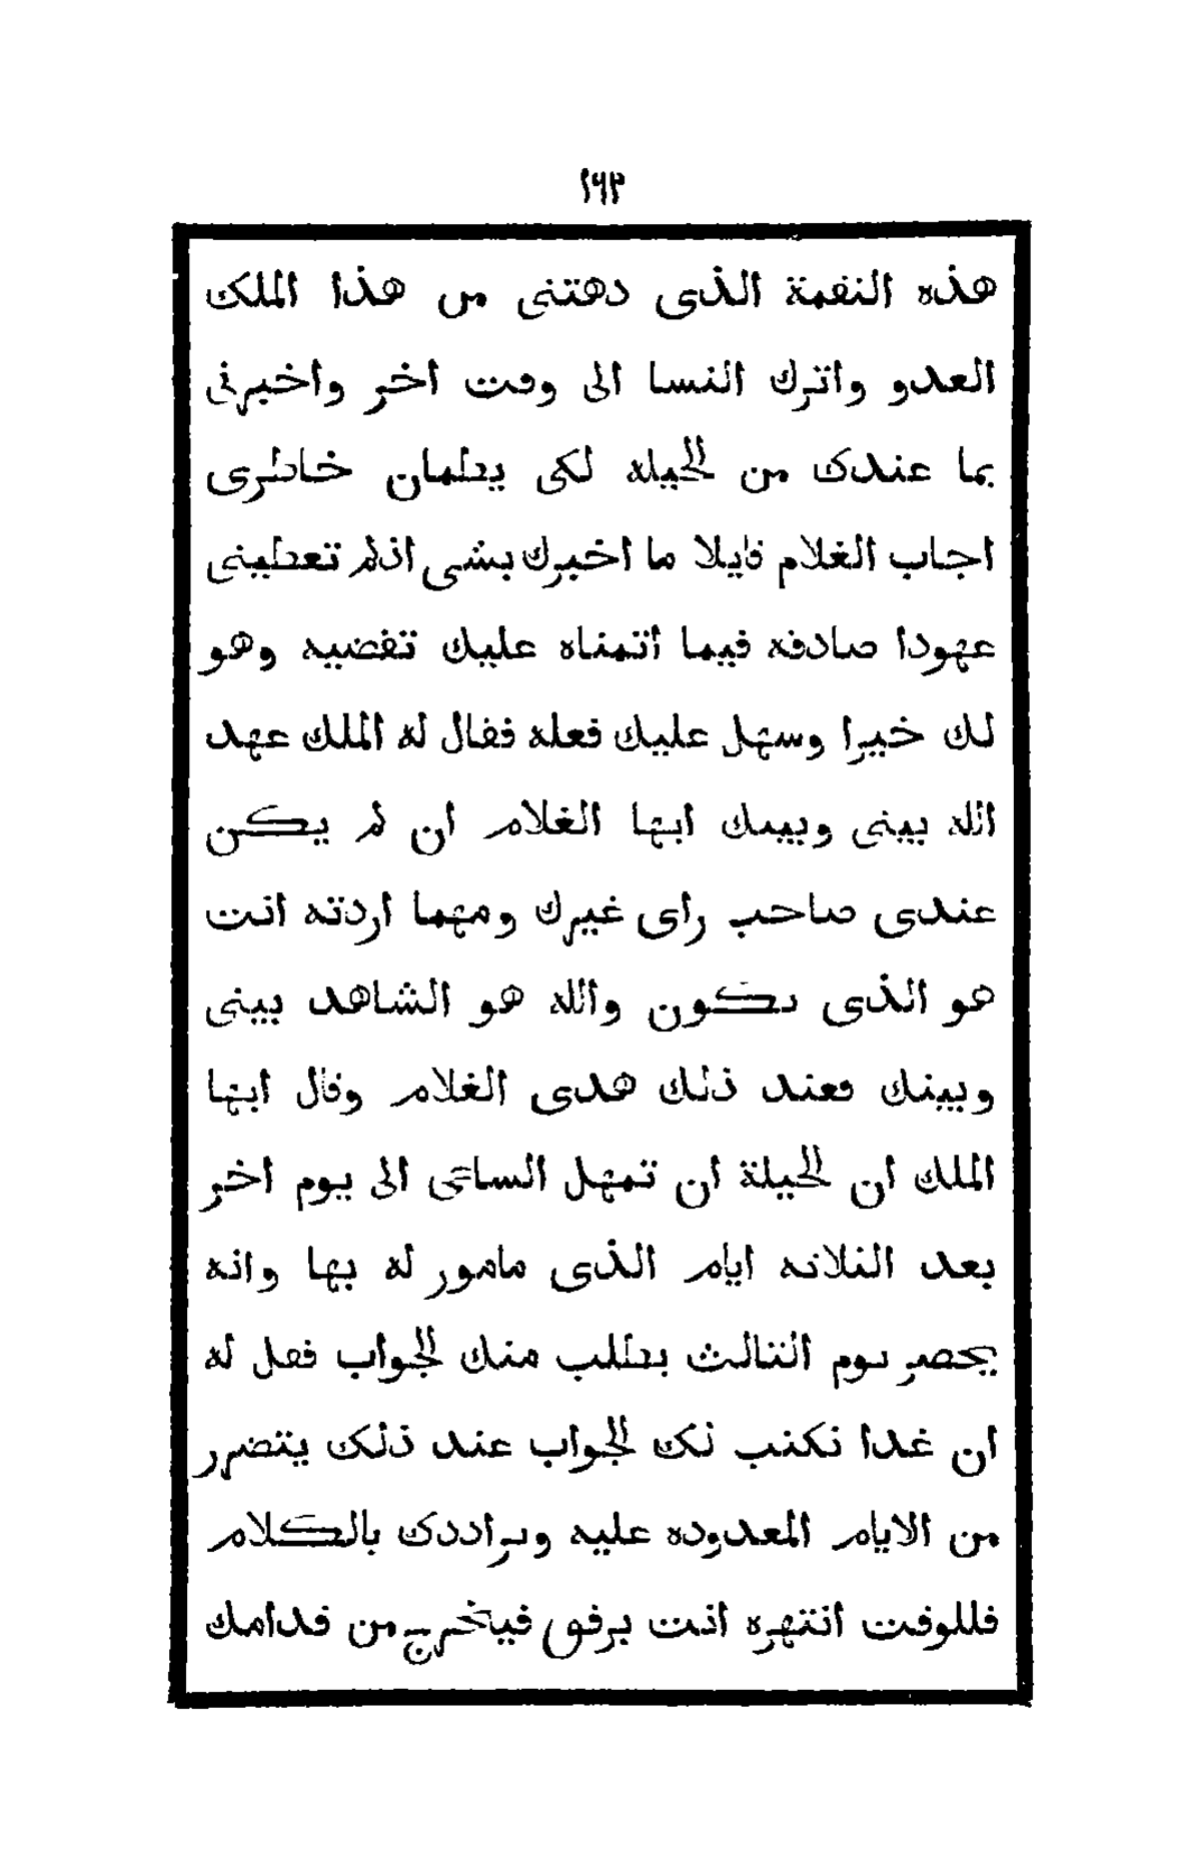 ١٦٢
هذه النقمة الذى دهتنى من هذا الملك
العدو واترك النسا الى وقت اخر واخبرنى
بما عندك من الحيله لكى يطمان خاطرى
اجاب الغلام قايلا ما اخبرك بشى اذلم تعطينى
عهودا صادقه فيما أتمناه عليك تقضيه وهو
لك خيرا وسهل عليك فعله فقال له الملك عهد
الله بينى وبينك ايها الغلام ان لم يكن
عندى صاحب راى غيرك ومهما اردته انت
هو الذى يكون والله هو الشاهد بينى
وبينك فعند ذلك هدى الغلام وقال ايها
الملك ان الحيلة ان تمهل الساعى الى يوم اخر
بعد الثلاثه ايام الذى مامور له بها وانه
يحضر يوم الثالث يطلب منك الجواب فقل له
ان غدا نكتب لك الجواب عند ذلك يتضرر
من الايام المعدوده عليه ويراددك بالكلام
فللوقت انتهره انت برفق فيخرج من قدامك